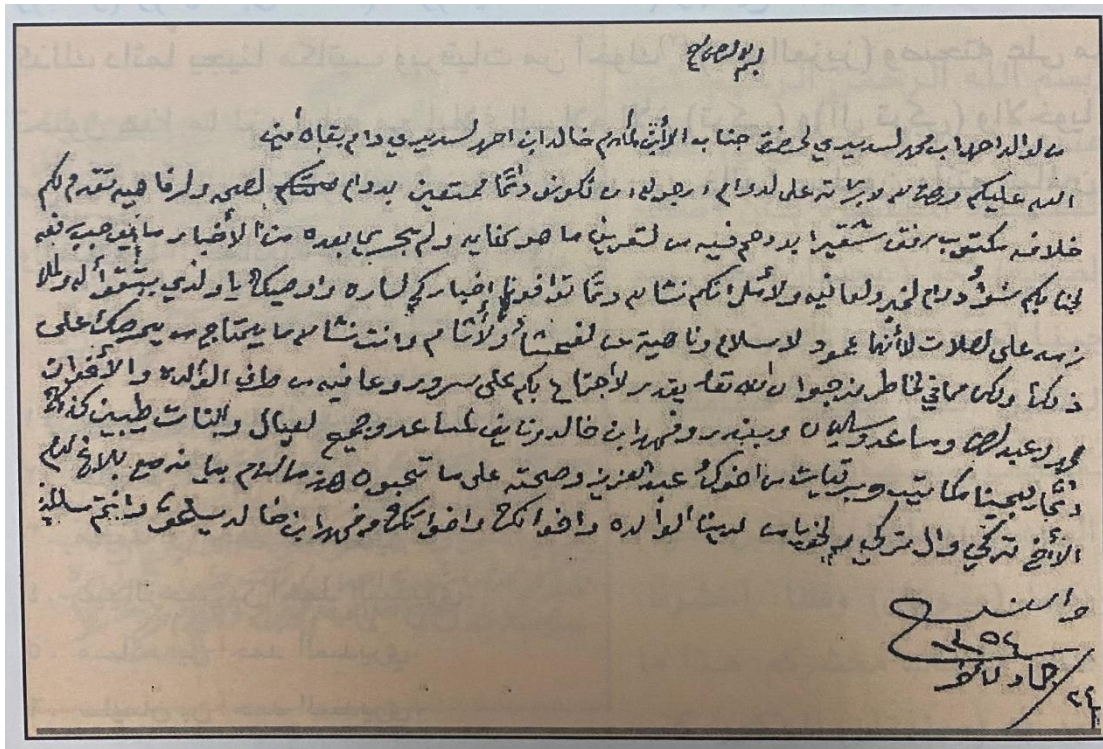 بسم الله الرحمن الرحيم
من الوالد احمد ابن محمد السديري لحضرة جناب الأبن المكرم خالد ابن احمد السديري دام بقاه أمين
السلام عليكم ورحمة الله وبركاته على الدوام ارجو الله ان تكونون دائماً ممتعين بدوام الصحه والرفاهيه تقدم لكم
خلافه مكتوب رفق شقير ابدوهم فيه من التعريف ما هو كفايه ولم يجري بعده من الأخبار ما يوجب رفعه
لجنابكم سوا دوام الخير والعافيه والأمل انكم نشالله دائماً توافونا اخباركم الساره واوصيك يا ولدي بتقوا الله والملا
زمه على الصلات لأنها عمود الاسلام وناهية عن الفحشا والأثام وانت نشالله ما يحتاج من يحرصك على
ذلك ولكن مما في الخاطر نرجوا من الله تعالى يقدر الأجتماع بكم على سرور وعافيه من طرف الوالده والأخوان
محمد وعبدالرحمن ومساعد وسليمان وبندر وفهد ابن خالد ونايف المساعد وجميع العيال والبنات طيبين كذلك
دائماً يجينا مكاتيب وبرقيات من اخوك عبدالعزيز وصحته على ما تحبون هذا ما لزم بيانه مع بلاغ السلام
الأخ تركي وال تركي والخويا من لدينا الوالده واخوانك واخواتك وفهد ابن خالد يسلمون وانتم سالمين
والسلام
١٣٥٤
٢٤ جماد الاخر